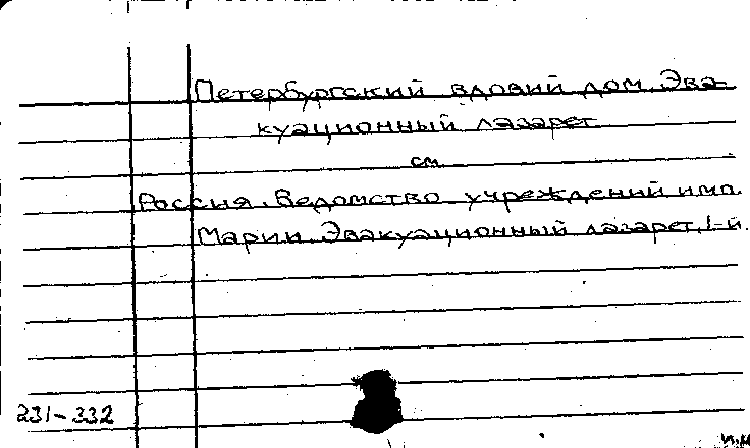 Петербургский вдовий дом. Эва-
куационный лазарет
см.
Россия. Ведомство учреждений имп.
Марии. Эвакуационный лазарет, 1-й.
231-332